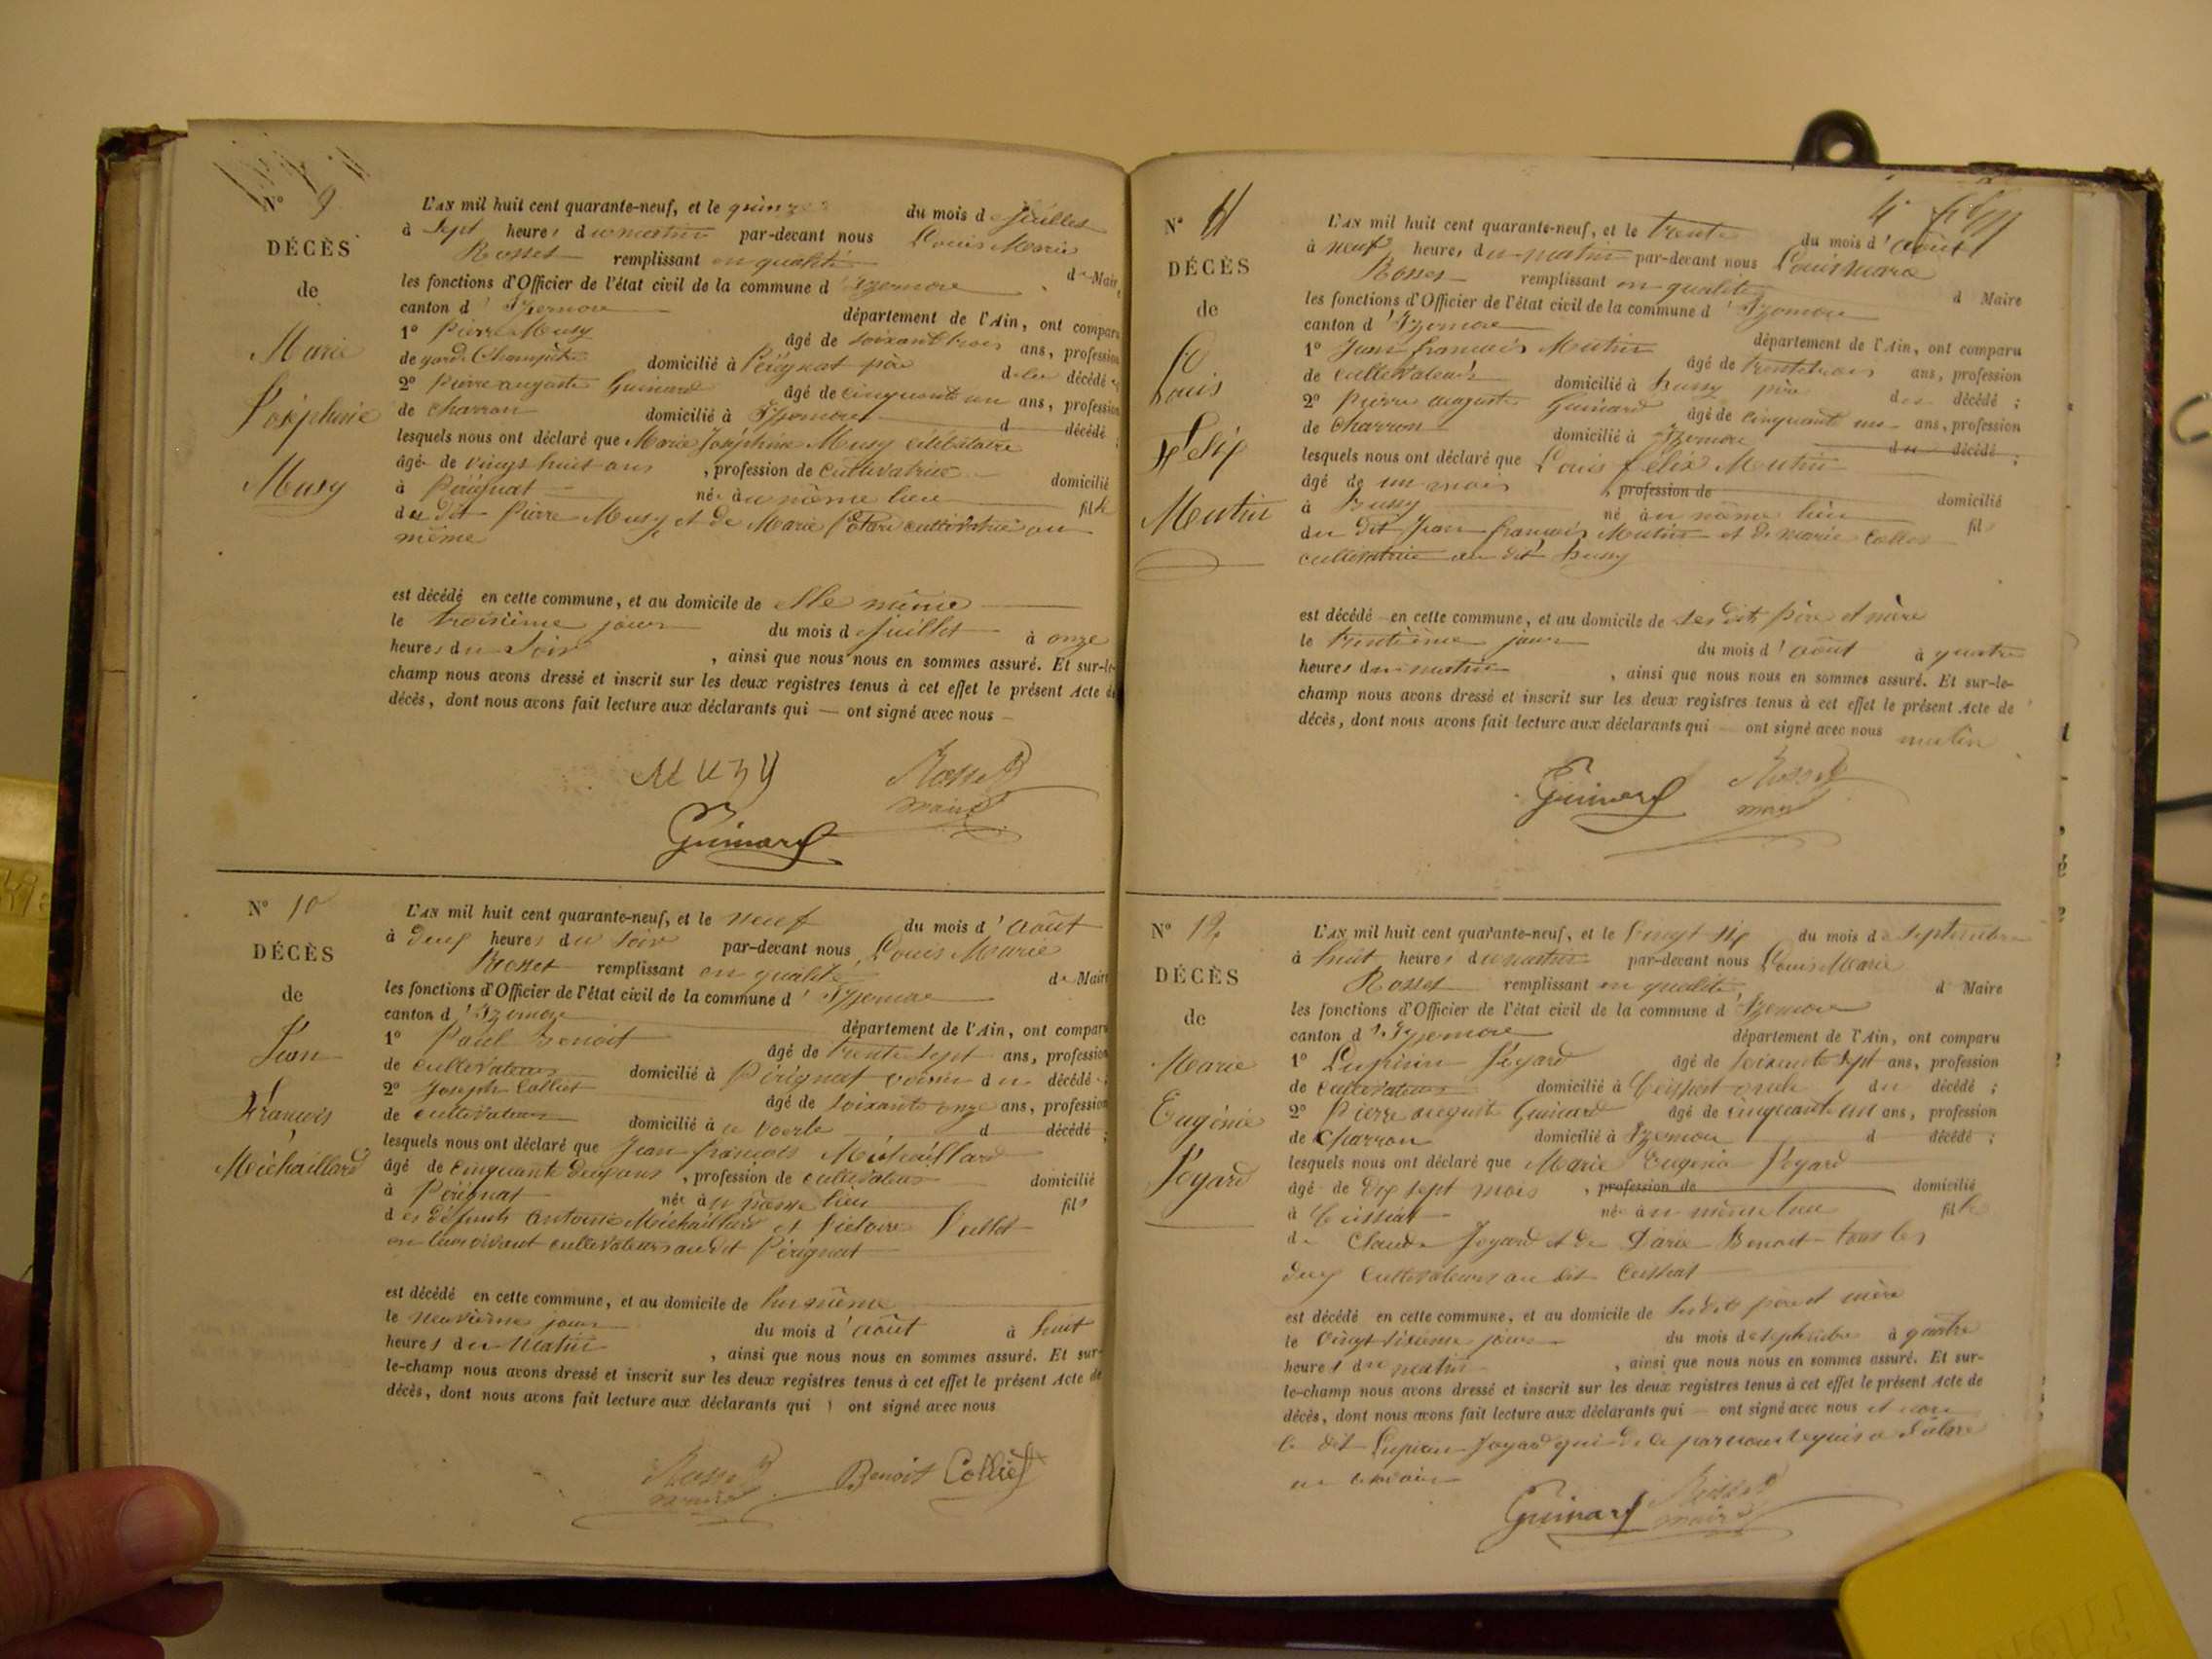 N° 9
DÉCÈS
de
Marie
Joséphine
Musy
L'AN mil huit cent quarante-neuf, et le quinze du mois de Juillet
à Sept heures du matin par-devant nous Louis Marie
Rosset remplissant en qualité de Maire
les fonctions d'Officier de l'état civil de la commune d'Izernore
canton d'Izernore département de l'Ain, ont comparu
1° Pierre Musy âgé de soixante trois ans, profession
de garde Champêtre domicilié à Pérignat père de la décédée
2° Pierre auguste Guinard âgé de cinquante un ans, profession
de charron domicilié à Izernore d décédé ;
lesquels nous ont déclaré que Marie Joséphine Musy célibataire
âgée de vingt huit ans , profession de cultivatrice domicilié
à Pérignat née au même lieu fille
du dit Pierre Musy et de Marie cultivatrice au
même
est décédé en cette commune, et au domicile de Elle même
le troisième jour du mois de Juillet à onze
heures du Soir , ainsi que nous nous en sommes assuré. Et sur-le-
champ nous avons dressé et inscrit sur les deux registres tenus à cet effet le présent Acte de
décès, dont nous avons fait lecture aux déclarants qui — ont signé avec nous —
MUZY Rosset
maire
Guinard
N° 10
DÉCÈS
de
Jean
François
Michaillard
L'AN mil huit cent quarante-neuf, et le neuf du mois d'août
à deux heures du soir par-devant nous Louis Marie
Rosset remplissant en qualité de Maire
les fonctions d'Officier de l'état civil de la commune d'Izernore
canton d'Izernore département de l'Ain, ont comparu
1° Paul Benoit âgé de trente sept ans, profession
de cultivateur domicilié à Pérignat voisin du décédé ;
2° Joseph Colliet âgé de soixante onze ans, profession
de cultivateur domicilié à d décédé ;
lesquels nous ont déclaré que Jean françois Michaillard
âgé de cinquante deux ans , profession de cultivateur domicilié
à Pérignat né au même lieu fils
des défunts Antoine Michaillard et Victoire
en leur vivant cultivateurs au dit Pérignat
est décédé en cette commune, et au domicile de lui même
le neuvième jour du mois d'août à huit
heures du matin , ainsi que nous nous en sommes assuré. Et sur-
le-champ nous avons dressé et inscrit sur les deux registres tenus à cet effet le présent Acte de
décès, dont nous avons fait lecture aux déclarants qui ont signé avec nous
Rosset Benoit Colliet
maire
N° 11
DÉCÈS
de
Louis
Félix
Mutin
L'AN mil huit cent quarante-neuf, et le trente du mois d'août
à neuf heures du matin par-devant nous Louis Marie
Rosset remplissant en qualité d Maire
les fonctions d'Officier de l'état civil de la commune d'Izernore
canton d'Izernore département de l'Ain, ont comparu
1° Jean francois Mutin âgé de trente trois ans, profession
de cultivateur domicilié à Bussy père du décédé ;
2° Pierre auguste Guinard âgé de cinquante un ans, profession
de charron domicilié à Izernore du décédé ;
lesquels nous ont déclaré que Louis félix Mutin
âgé de un mois , profession de domicilié
à Bussy né au même lieu fils
du dit Jean françois Mutin et de marie
cultivatrice au dit Bussy
est décédé en cette commune, et au domicile de ses dits père et mère
le trentième jour du mois d'août à quatre
heures du matin , ainsi que nous nous en sommes assuré. Et sur-le-
champ nous avons dressé et inscrit sur les deux registres tenus à cet effet le présent Acte de
décès, dont nous avons fait lecture aux déclarants qui — ont signé avec nous mutin
Guinard Rosset
maire
N° 12
DÉCÈS
de
Marie
Eugénie
Joyard
L'AN mil huit cent quarante-neuf, et le vingt six du mois de Septembre
à huit heures du matin par-devant nous Louis Marie
Rosset remplissant en qualité d Maire
les fonctions d'Officier de l'état civil de la commune d'Izernore
canton d'Izernore département de l'Ain, ont comparu
1° Lupicin Joyard âgé de soixante sept ans, profession
de cultivateur domicilié à Ceissiat oncle du décédé ;
2° Pierre auguste Guinard âgé de cinquante un ans, profession
de Charron domicilié à Izernore d décédé ;
lesquels nous ont déclaré que Marie Eugénie Joyard
âgé de dix sept mois , profession de domicilié
à Ceissiat née au même lieu fille
de Claude Joyard et de Marie Benoit tous les
deux cultivateurs au dit Ceissiat
est décédé en cette commune, et au domicile de ses dits père et mère
le vingt sixième jour du mois de septembre à quatre
heures du matin , ainsi que nous nous en sommes assuré. Et sur-
le-champ nous avons dressé et inscrit sur les deux registres tenus à cet effet le présent Acte de
décès, dont nous avons fait lecture aux déclarants qui — ont signé avec nous et non
le dit Lupicin Joyard qui de ce par nous requis a déclaré
ne le savoir
Guinard Rosset
maire